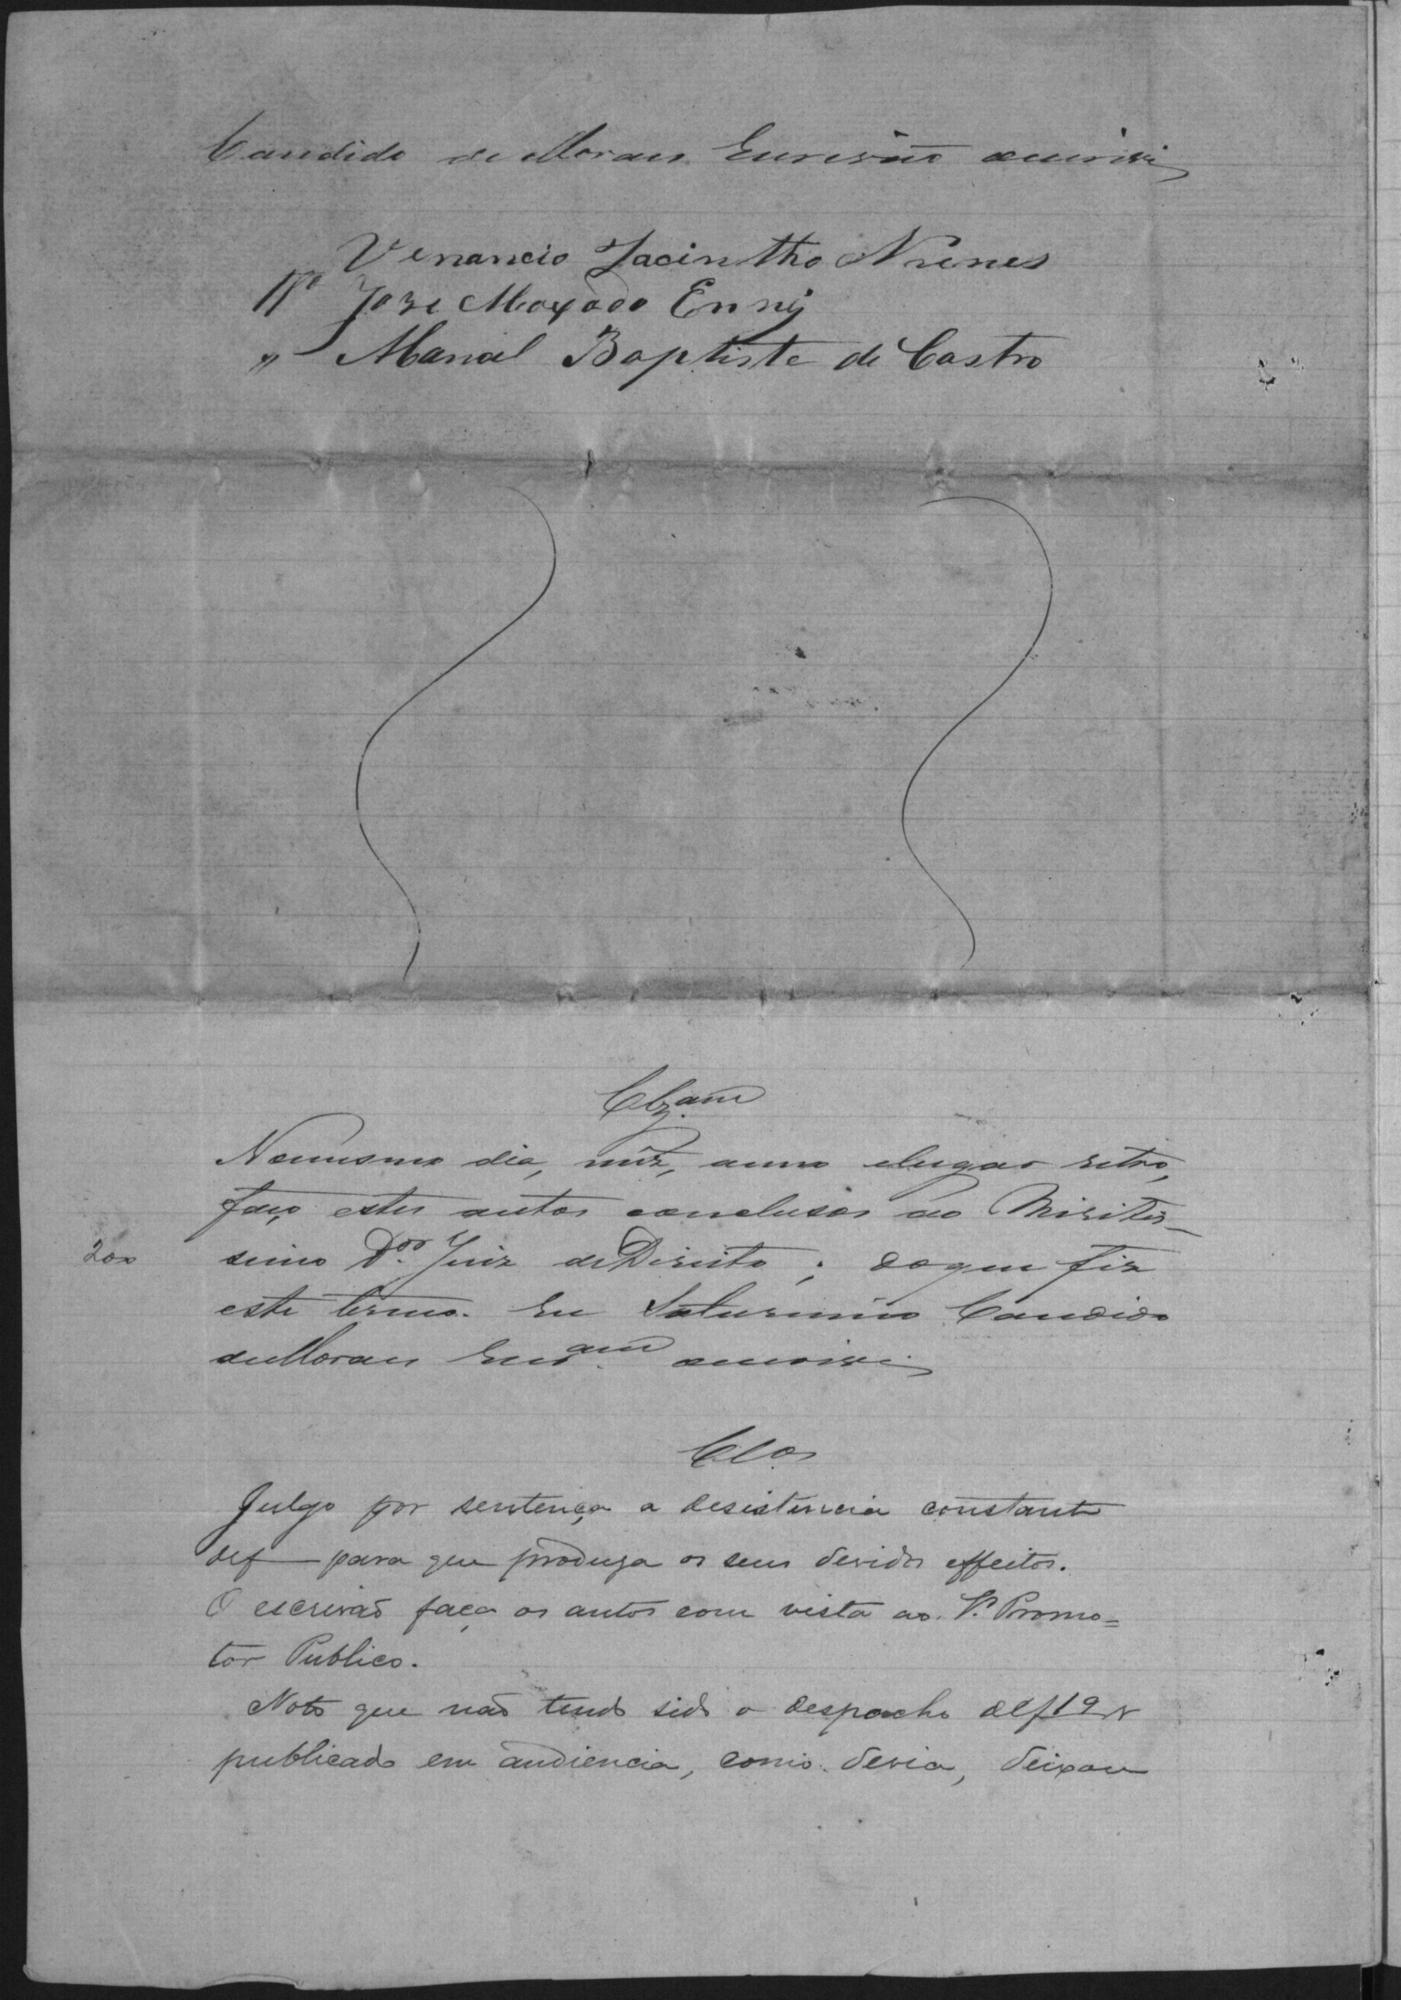 Candido de Moraes Escrivão escrevi
Venancio Jacintho Nunes
Jose Maxado
" Manoel Baptista de Castro
Clz.am
No mesmo dia, mez, anno e lugar retro,
faço estes autos conclusos ao Meritis-
200
simo D.or Juiz de Direito; do que fiz
este termo. Eu Saturnino Candido
de Moraes Escr.am escrevi
Cl.os
Julgo por sentença a desistencia constante
def— para que produza os seus devidos effeitos.
O escrivão faça os autos com vista ao Promo=
tor Publico.
Noto que não tendo sido o despacho def 19
publicado em audiencia, como devia, deixou